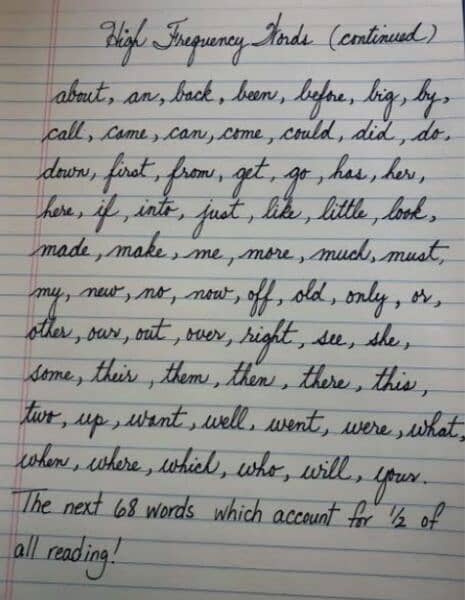 High Frequency Words (continued)
about, an, back, been, before, big, by,
call, came, can, come, could, did, do,
down, first, from, get, go, has, her,
here, if, into, just, like, little, look,
made, make, me, more, much, must,
my, new, no, now, off, old, only, or,
other, our, out, over, right, see, she,
some, their, them, then, there, this,
two, up, want, well, went, were, what,
when, where, which, who, will, your.
The next 68 words which account for ½ of
all reading!